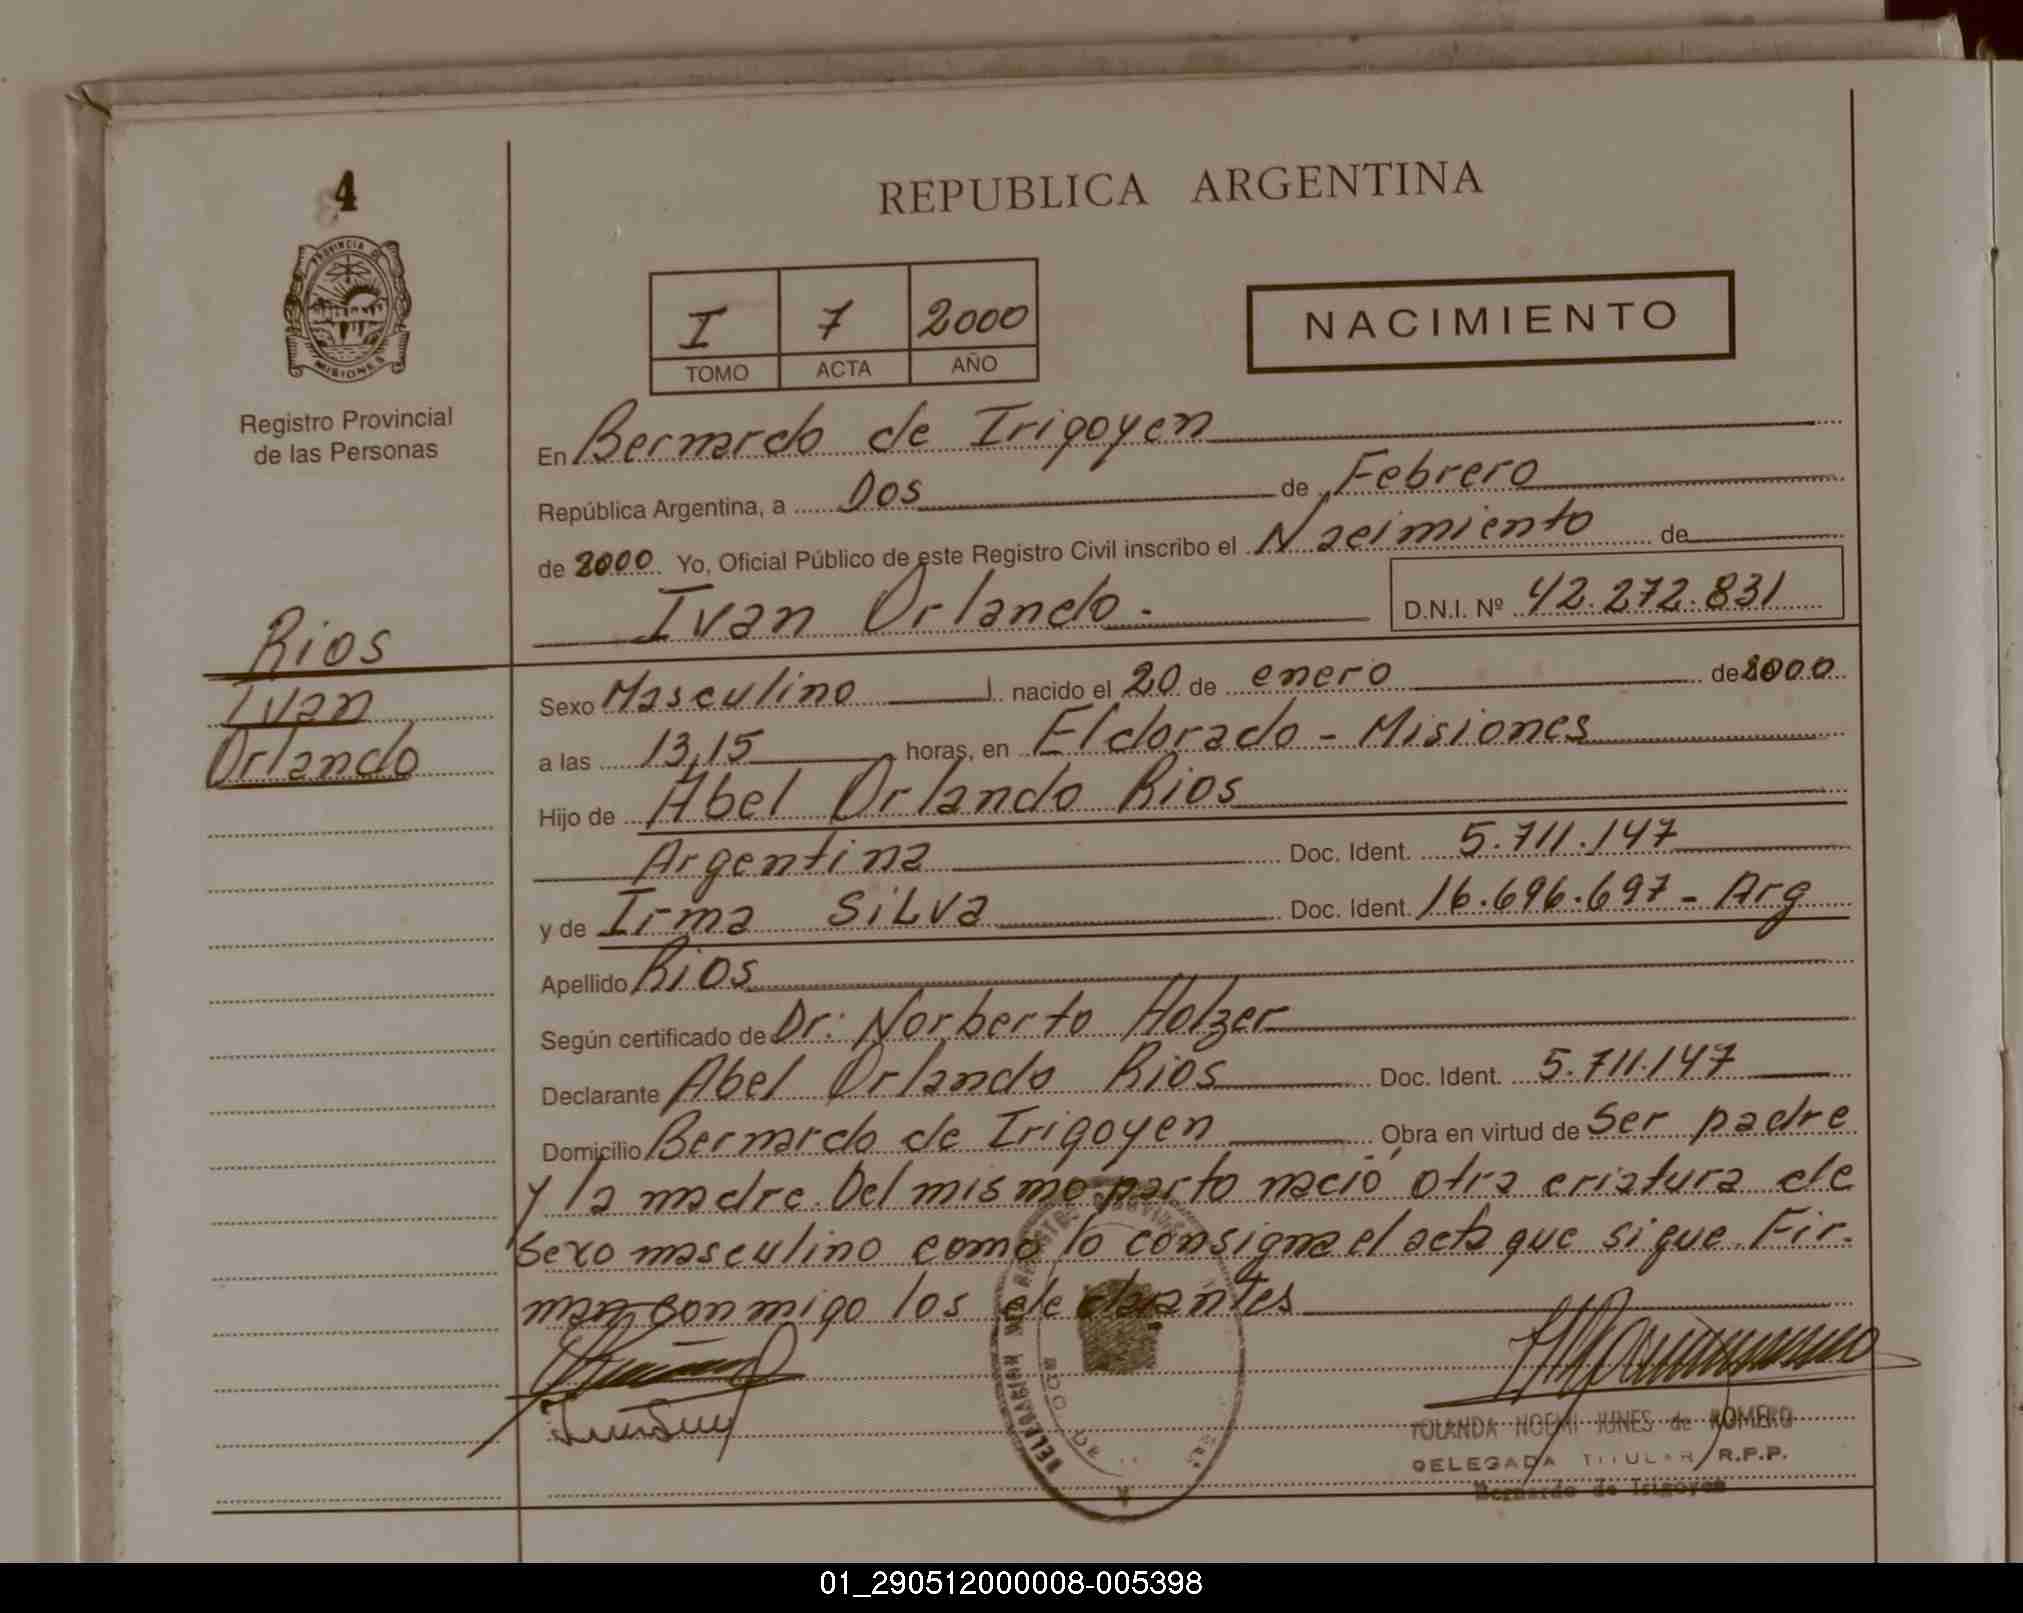 4
PROVINCIA DE
MISIONES
Registro Provincial
de las Personas
Rios
Ivan
Orlando
REPUBLICA ARGENTINA
I 7 2000
TOMO ACTA AÑO
NACIMIENTO
En Bernardo de Irigoyen
República Argentina, a Dos de Febrero
de 2000 Yo, Oficial Público de este Registro Civil inscribo el Nacimiento de
Ivan Orlando. D.N.I. Nº 42.272.831
Sexo Masculino nacido el 20 de enero de 2000
a las 13,15 horas, en Eldorado - Misiones
Hijo de Abel Orlando Rios
Argentina Doc. Ident. 5.711.147
y de Irma SiLva Doc. Ident. 16.696.697 - Arg
Apellido Rios
Según certificado de Dr: Norberto Holzer
Declarante Abel Orlando Rios Doc. Ident. 5.711.147
Domicilio Bernardo de Irigoyen Obra en virtud de Ser padre
y la madre. Del mismo parto nació otra criatura de
sexo masculino como lo consigna el acta que sigue. Fir-
man conmigo los declarantes
YOLANDA NOEMI JUNES de ROMERO
DELEGADA TITULAR R.P.P.
Bernardo de Irigoyen
01_290512000008-005398